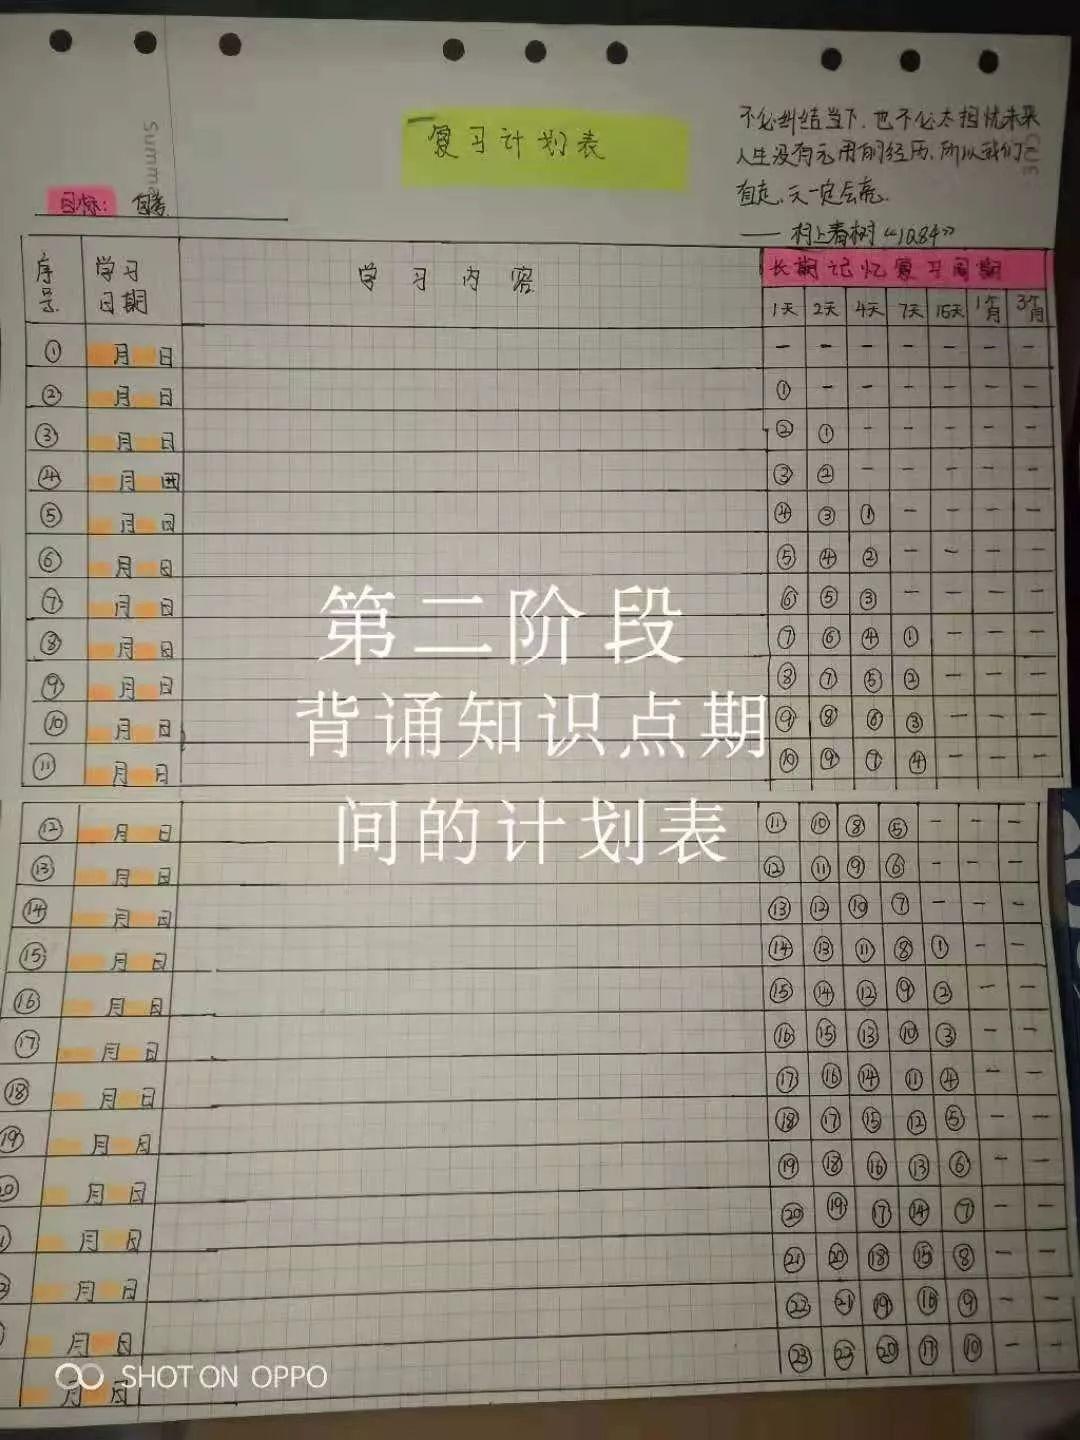 Summa
复习计划表
不必纠结当下，也不必太担忧未来
人生没有无用的经历，所以我们
直走，天一定会亮。
—— 村上春树《1Q84》
目标：自考
序号 学习日期 学习内容 长期记忆复习周期
1天 2天 4天 7天 15天 1个月 3个月
① 月 日 - - - - - - -
② 月 日 ① - - - - - -
③ 月 日 ② ① - - - - -
④ 月 日 ③ ② - - - - -
⑤ 月 日 ④ ③ ① - - - -
⑥ 月 日 ⑤ ④ ② - - - -
⑦ 月 日 ⑥ ⑤ ③ - - - -
⑧ 月 日 ⑦ ⑥ ④ ① - - -
⑨ 月 日 ⑧ ⑦ ⑤ ② - - -
⑩ 月 日 ⑨ ⑧ ⑥ ③ - - -
⑪ 月 日 ⑩ ⑨ ⑦ ④ - - -
第二阶段
背诵知识点期
间的计划表
⑫ 月 日 ⑪ ⑩ ⑧ ⑤ - - -
⑬ 月 日 ⑫ ⑪ ⑨ ⑥ - - -
⑭ 月 日 ⑬ ⑫ ⑩ ⑦ - - -
⑮ 月 日 ⑭ ⑬ ⑪ ⑧ ① - -
⑯ 月 日 ⑮ ⑭ ⑫ ⑨ ② - -
⑰ 月 日 ⑯ ⑮ ⑬ ⑩ ③ - -
⑱ 月 日 ⑰ ⑯ ⑭ ⑪ ④ - -
⑲ 月 日 ⑱ ⑰ ⑮ ⑫ ⑤ - -
⑳ 月 日 ⑲ ⑱ ⑯ ⑬ ⑥ - -
月 日 ⑳ ⑲ ⑰ ⑭ ⑦ - -
月 日 ㉑ ⑳ ⑱ ⑮ ⑧ - -
月 日 ㉒ ㉑ ⑲ ⑯ ⑨ - -
月 日 ㉓ ㉒ ⑳ ⑰ ⑩ - -
SHOT ON OPPO